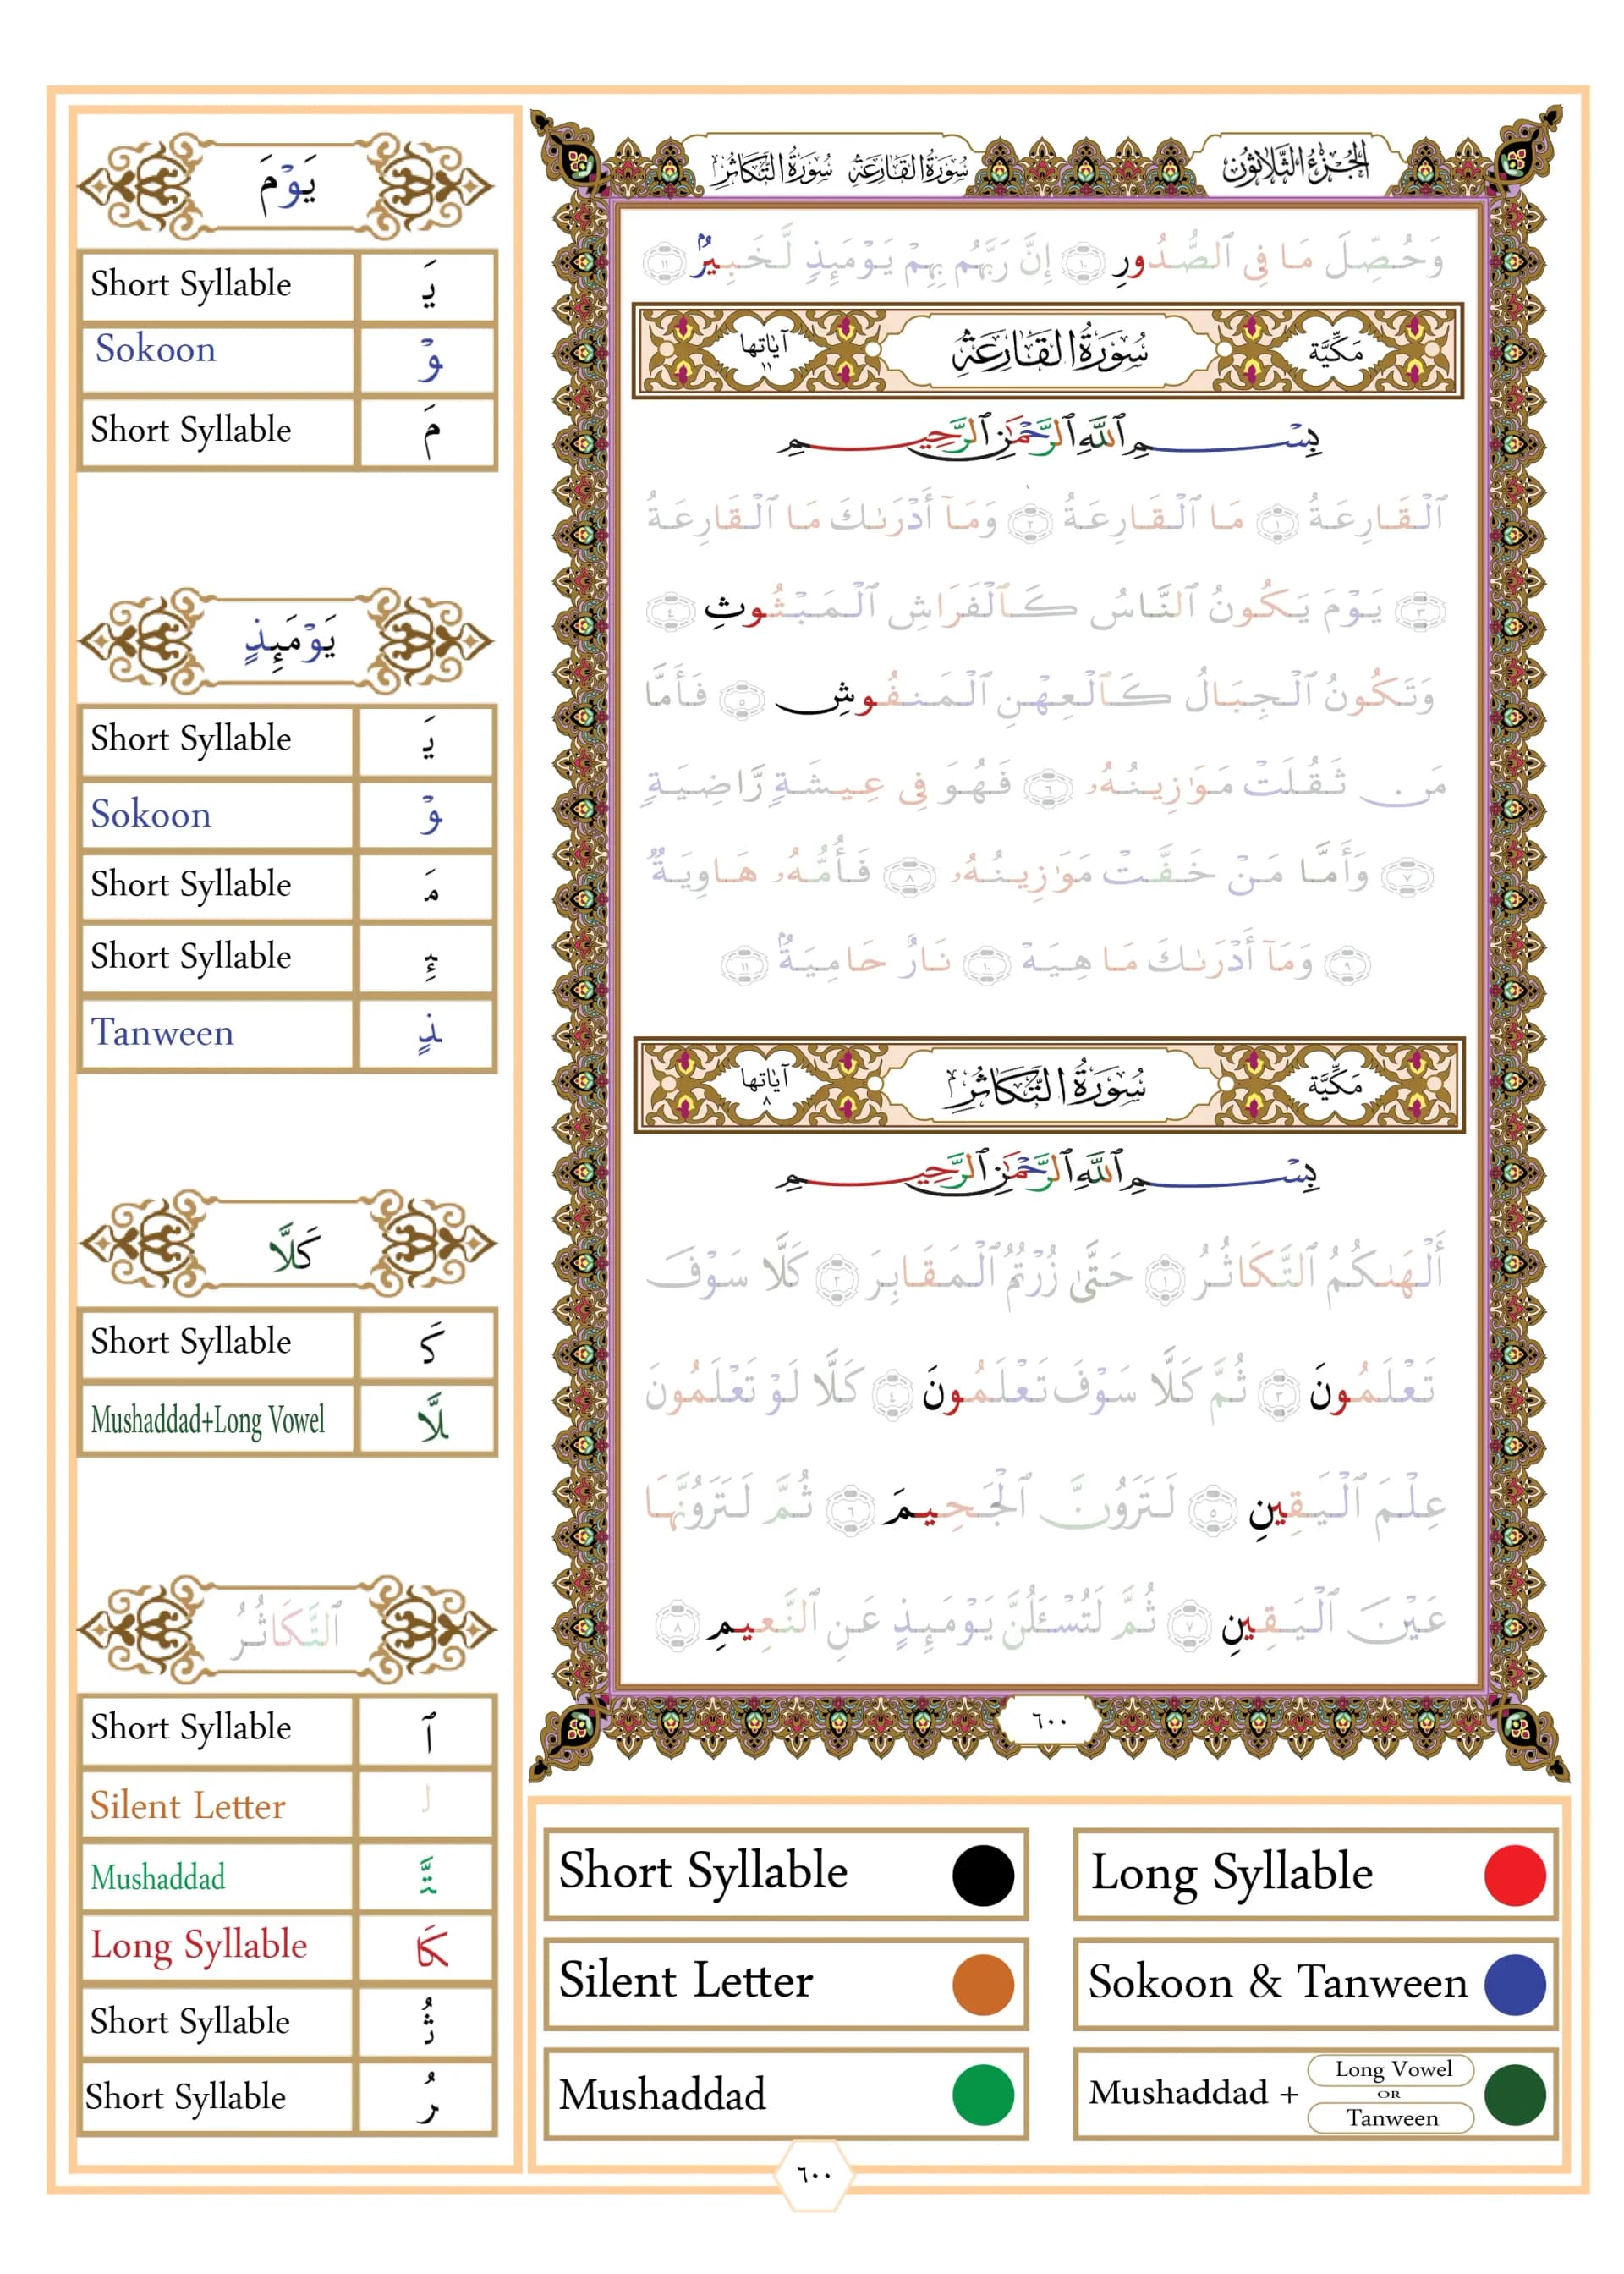 الجزء الثلاثون
سورة القارعة سورة التكاثر
وَحُصِّلَ مَا فِى ٱلصُّدُورِ ١٠ إِنَّ رَبَّهُم بِهِمْ يَوْمَئِذٍ لَّخَبِيرٌۢ ١١
مَكِّيَّة سُورَةُ القَارِعَةِ آياتها ١١
بِسْمِ ٱللَّهِ ٱلرَّحْمَٰنِ ٱلرَّحِيمِ
ٱلْقَارِعَةُ ١ مَا ٱلْقَارِعَةُ ٢ وَمَآ أَدْرَىٰكَ مَا ٱلْقَارِعَةُ
٣ يَوْمَ يَكُونُ ٱلنَّاسُ كَٱلْفَرَاشِ ٱلْمَبْثُوثِ ٤
وَتَكُونُ ٱلْجِبَالُ كَٱلْعِهْنِ ٱلْمَنفُوشِ ٥ فَأَمَّا
مَن ثَقُلَتْ مَوَٰزِينُهُۥ ٦ فَهُوَ فِى عِيشَةٍ رَّاضِيَةٍ
٧ وَأَمَّا مَنْ خَفَّتْ مَوَٰزِينُهُۥ ٨ فَأُمُّهُۥ هَاوِيَةٌ
٩ وَمَآ أَدْرَىٰكَ مَا هِيَهْ ١٠ نَارٌ حَامِيَةٌۢ ١١
مَكِّيَّة سُورَةُ التَّكَاثُرِ آياتها ٨
بِسْمِ ٱللَّهِ ٱلرَّحْمَٰنِ ٱلرَّحِيمِ
أَلْهَىٰكُمُ ٱلتَّكَاثُرُ ١ حَتَّىٰ زُرْتُمُ ٱلْمَقَابِرَ ٢ كَلَّا سَوْفَ
تَعْلَمُونَ ٣ ثُمَّ كَلَّا سَوْفَ تَعْلَمُونَ ٤ كَلَّا لَوْ تَعْلَمُونَ
عِلْمَ ٱلْيَقِينِ ٥ لَتَرَوُنَّ ٱلْجَحِيمَ ٦ ثُمَّ لَتَرَوُنَّهَا
عَيْنَ ٱلْيَقِينِ ٧ ثُمَّ لَتُسْـَٔلُنَّ يَوْمَئِذٍ عَنِ ٱلنَّعِيمِ ٨
٦٠٠
يَوْمَ
Short Syllable يَـ
Sokoon وْ
Short Syllable مَ
يَوْمَئِذٍ
Short Syllable يَـ
Sokoon وْ
Short Syllable مَـ
Short Syllable ئِـ
Tanween ذٍ
كَلَّا
Short Syllable كَـ
Mushaddad+Long Vowel لَّا
ٱلتَّكَاثُرُ
Short Syllable ٱ
Silent Letter لـ
Mushaddad تَّـ
Long Syllable كَا
Short Syllable ثُـ
Short Syllable رُ
Short Syllable
Long Syllable
Silent Letter
Sokoon & Tanween
Mushaddad
Mushaddad + Long Vowel OR Tanween
٦٠٠